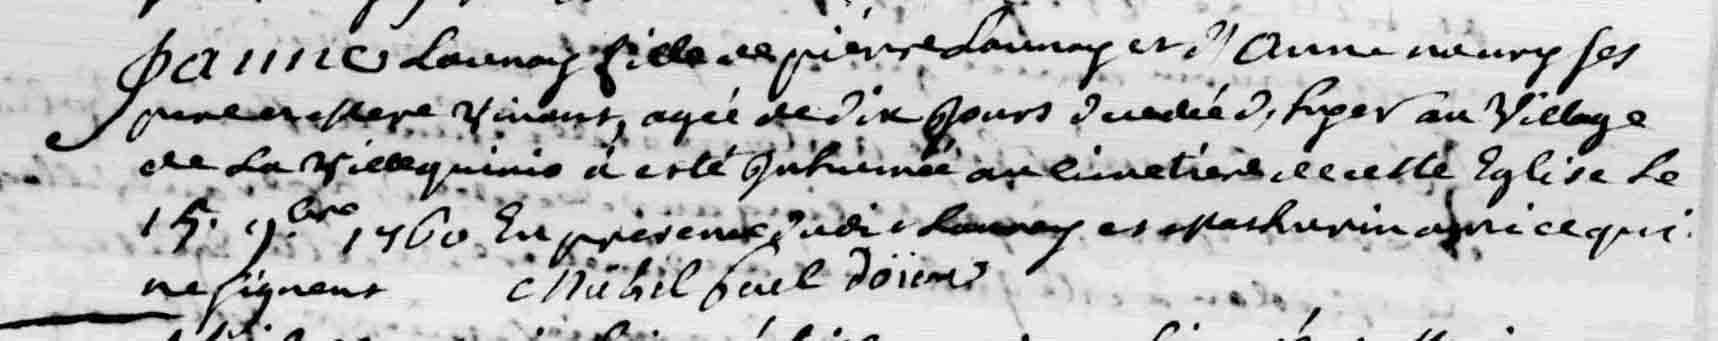 Janne Launay fille de pierre Launay et d'Anne neury ses
pere et Mere vivant, agée de dix Jours decedée d'hyer au Village
de La Villequinio a esté Inhumée au Cimetiere de cette Eglise Le
15. 9.bre 1760 En presence dudit Launay et Mathurin qui
ne signent Michel doien